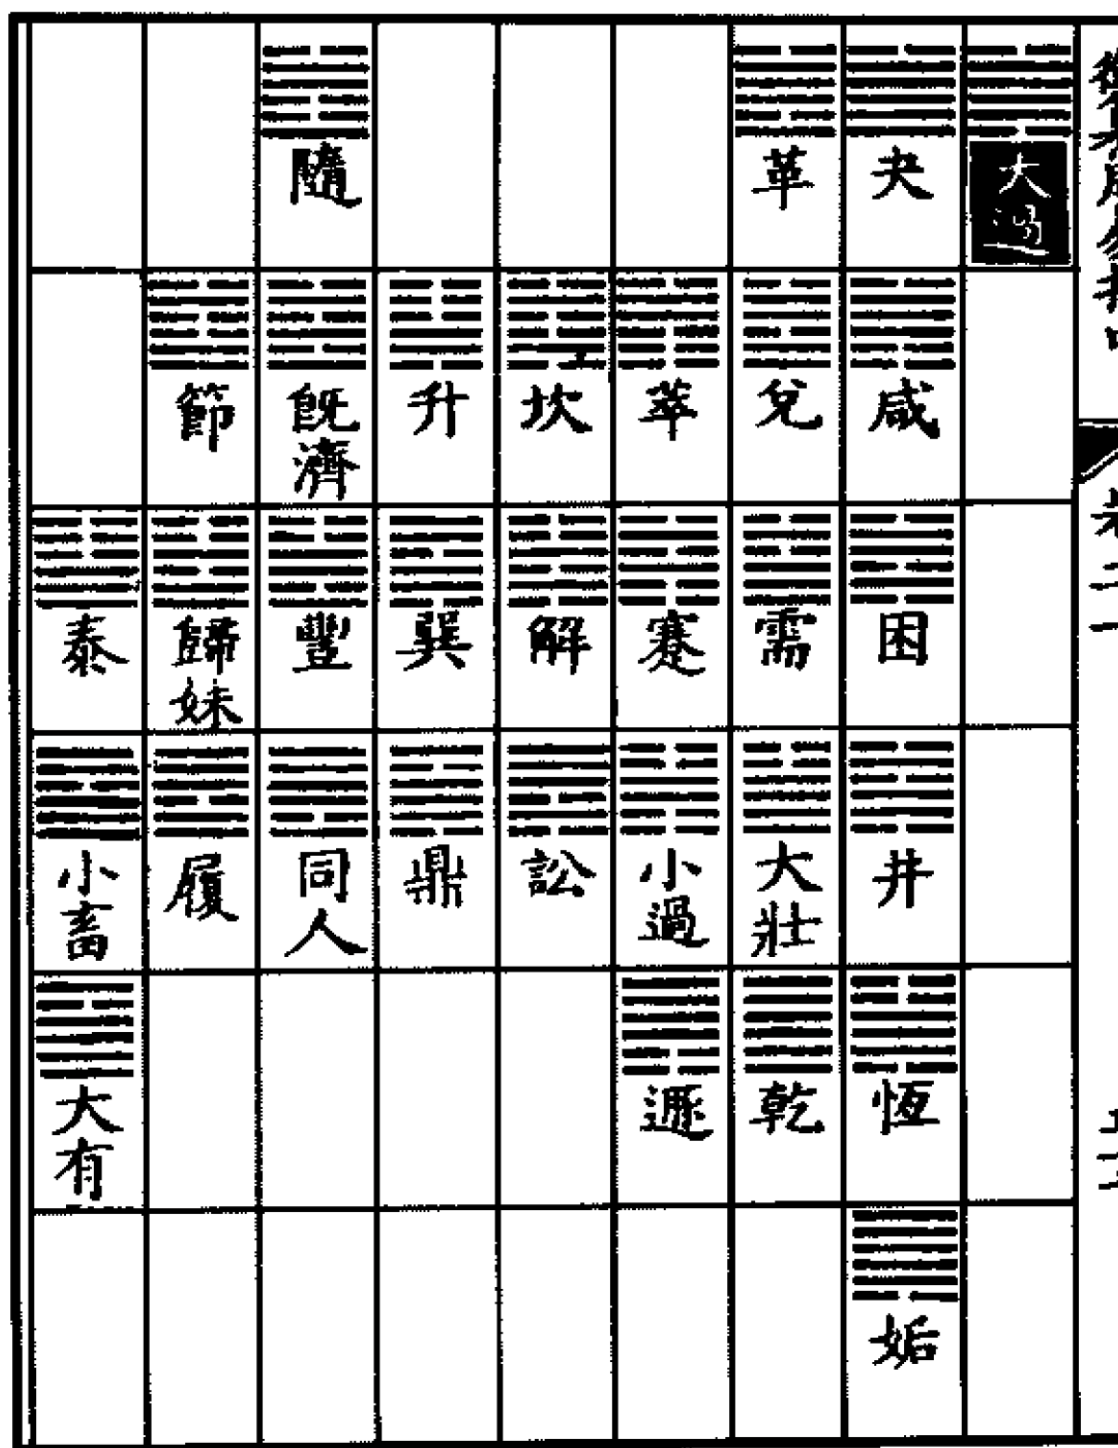 大過
夬
咸
困
井
恆
姤
革
兌
需
大壯
乾
萃
蹇
小過
遯
坎
解
訟
升
巽
鼎
隨
旣濟
豐
同人
節
歸妹
履
泰
小畜
大有